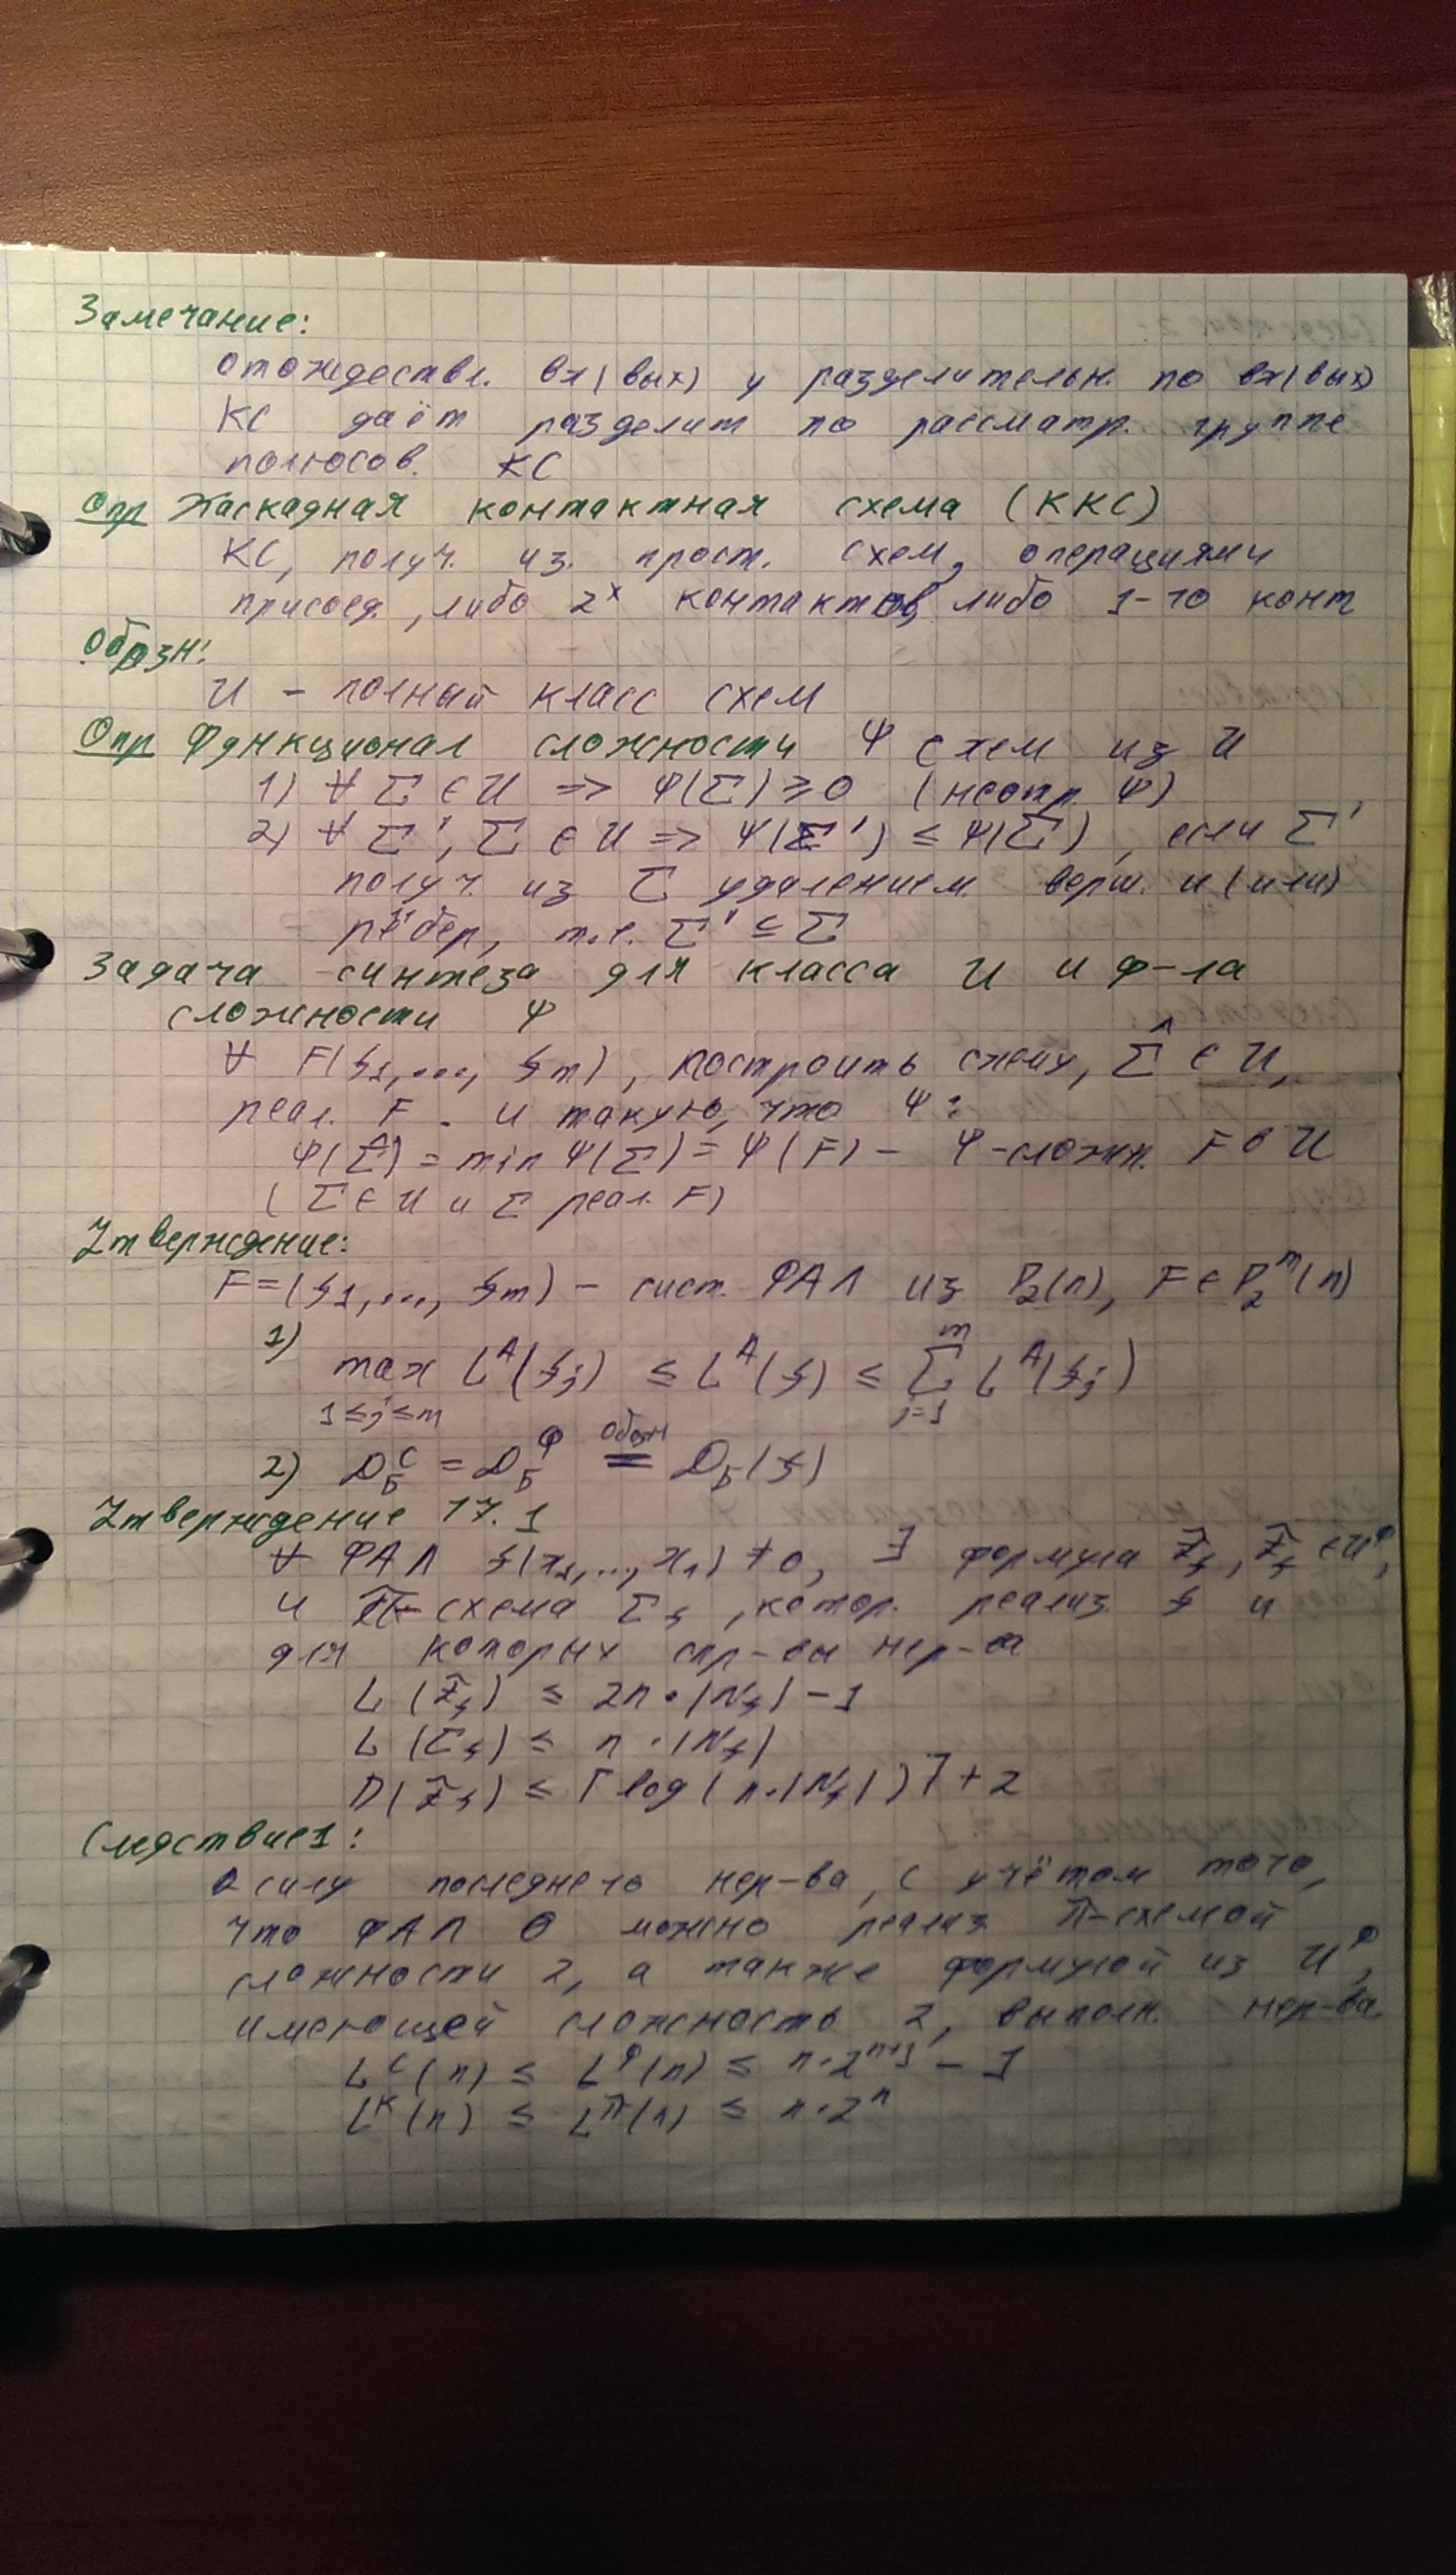 Замечание:
отождествл. вх(вых) у разделительн. по вх(вых)
КС даёт разделит по рассматр. группе
полюсов. КС
Опр Каскадная контактная схема (ККС)
КС, получ. из. прост. схем, операциями
присоед., либо 2х контактов, либо 1-го конт
Обозн:
U – полный класс схем
Опр Функционал сложности Ψ схем из U
1) ∀ Σ ∈ U => Ψ(Σ) ≥ 0 (неотр. Ψ)
2) ∀ Σ', Σ ∈ U => Ψ(Σ') ≤ Ψ(Σ), если Σ'
получ. из Σ удалением верш. и (или)
рёбер, т.е. Σ' ⊆ Σ
Задача синтеза для класса U и ф-ла
сложности Ψ
∀ F(f₁,..., fm), построить схему, Σ̂ ∈ U,
реал. F. и такую, что Ψ:
Ψ(Σ̂) = min Ψ(Σ) = Ψ(F) – Ψ-сложн. F в U
(Σ ∈ U и Σ реал. F)
Утверждение:
F=(f₁,..., fm) – сист. ФАЛ из P₂(n), F ∈ P₂ᵐ(n)
1)
max Lᴬ(fj) ≤ Lᴬ(f) ≤ Σ Lᴬ(fj)
1≤j≤m j=1 m
2) D_Бᶜ = D_Бᶲ =обозн= D_Б(f)
Утверждение 17.1
∀ ФАЛ f(x₁,..., xn) ≠ 0, ∃ формула F̃f, F̃f ∈ Uᶲ,
и π-схема Σf, котор. реализ. f и
для которых спр-вы нер-ва
L (F̃f) ≤ 2n·|Nf| – 1
L (Σf) ≤ n·|Nf|
D(F̃f) ≤ ⌈log(n·|Nf|)⌉ + 2
Следствие1:
В силу последнего нер-ва, с учётом того,
что ФАЛ 0 можно реализ π-схемой
сложности 2, а также формулой из Uᶲ,
имеющей сложность 2, выполн. нер-ва
Lᶜ(n) ≤ Lᶲ(n) ≤ n·2ⁿ⁺¹ – 1
Lᴷ(n) ≤ Lᵖ(n) ≤ n·2ⁿ